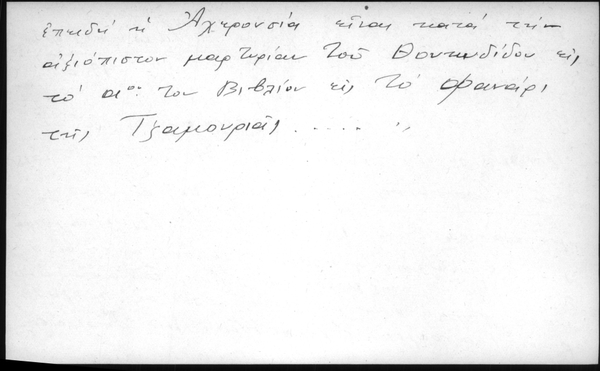 ἐπειδή ἡ Ἀχερουσία εἶναι κατά τήν
ἀξιόπιστον μαρτυρίαν τοῦ Θουκυδίδου εἰς
τό αον του Βιβλίον εἰς τό Φανάρι
τῆς Τζαμουριᾶς ..... "